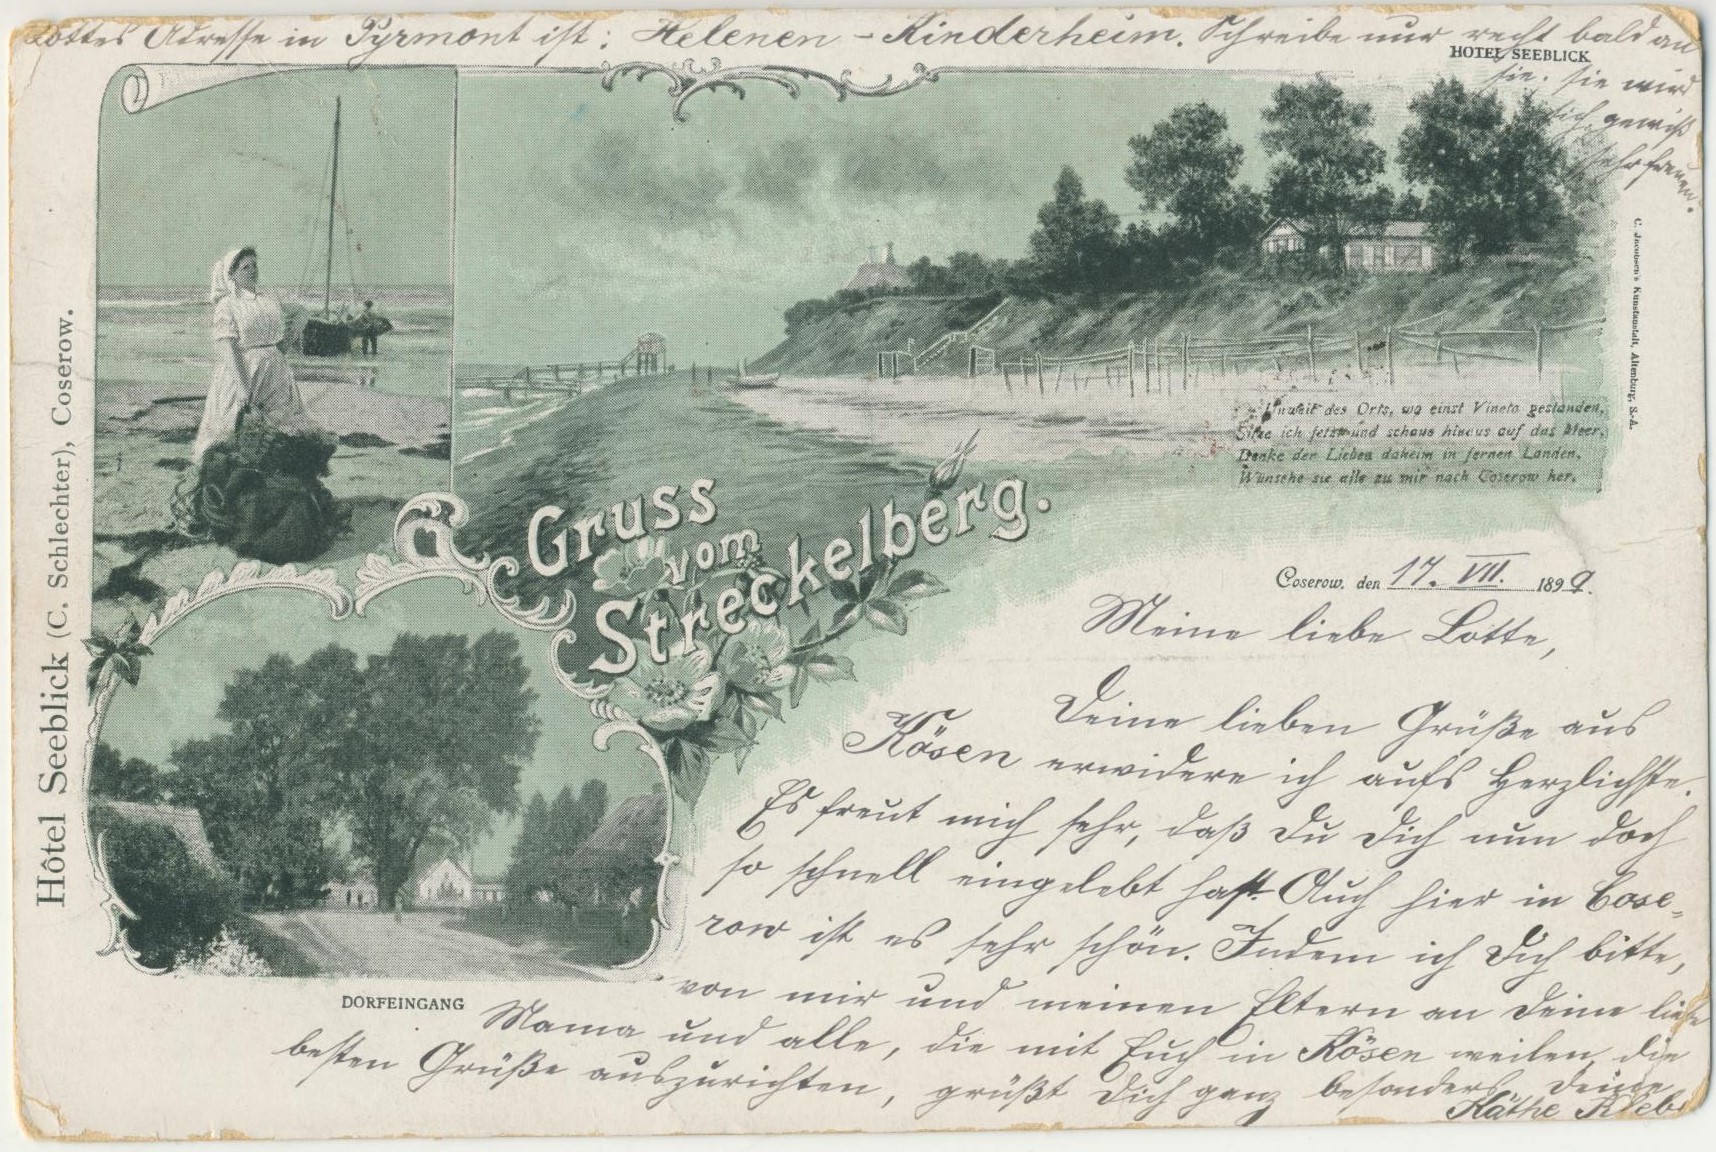 Lottes Adresse in Pyrmont ist: Helenen-Kinderheim. Schreibe nur recht bald an
sie. Sie wird
sich gewiß
sehr freuen.
HOTEL SEEBLICK
C. Jacobsen's Kunstanstalt, Altenburg, S.-A.
Hôtel Seeblick (C. Schlechter), Coserow.
Unweit des Orts, wo einst Vineta gestanden,
Sitze ich jetzt und schaue hinaus auf das Meer,
Denke der Lieben daheim in fernen Landen,
Wünsche sie alle zu mir nach Coserow her.
Gruss
vom
Streckelberg.
Coserow, den 17. VII. 1899.
Meine liebe Lotte,
Deine lieben Grüße aus
Kösen erwidere ich aufs Herzlichste.
Es freut mich sehr, daß Du Dich nun doch
so schnell eingelebt hast. Auch hier in Cose-
row ist es sehr schön. Indem ich Dich bitte,
von mir und meinen Eltern an Deine liebe
Mama und alle, die mit Euch in Kösen weilen, die
besten Grüße auszurichten, grüßt Dich ganz besonders Deine
Käthe
DORFEINGANG